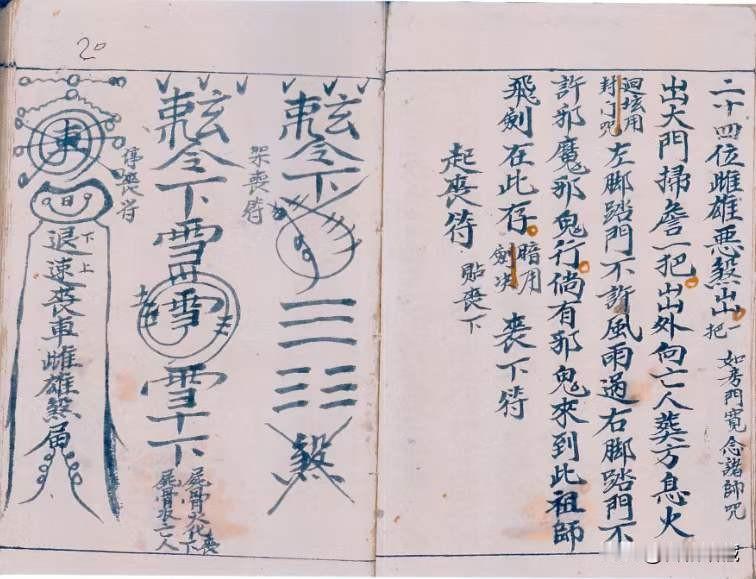 二十四位雌雄惡煞出一把 如房門寬念諸師咒
出大門掃詹一把出出外向亡人葬方息火
迴垓用封门咒 左脚踏門不許風雨過右脚踏門不
許邪魔邪鬼行倘有邪鬼來到此祖師
飛劍在此存 暗用劍决 喪下符
起喪符 貼喪下
玄令下
煞
架喪符
玄令下雪雪雪下
停喪符
20
退下上速喪車雌雄煞屆